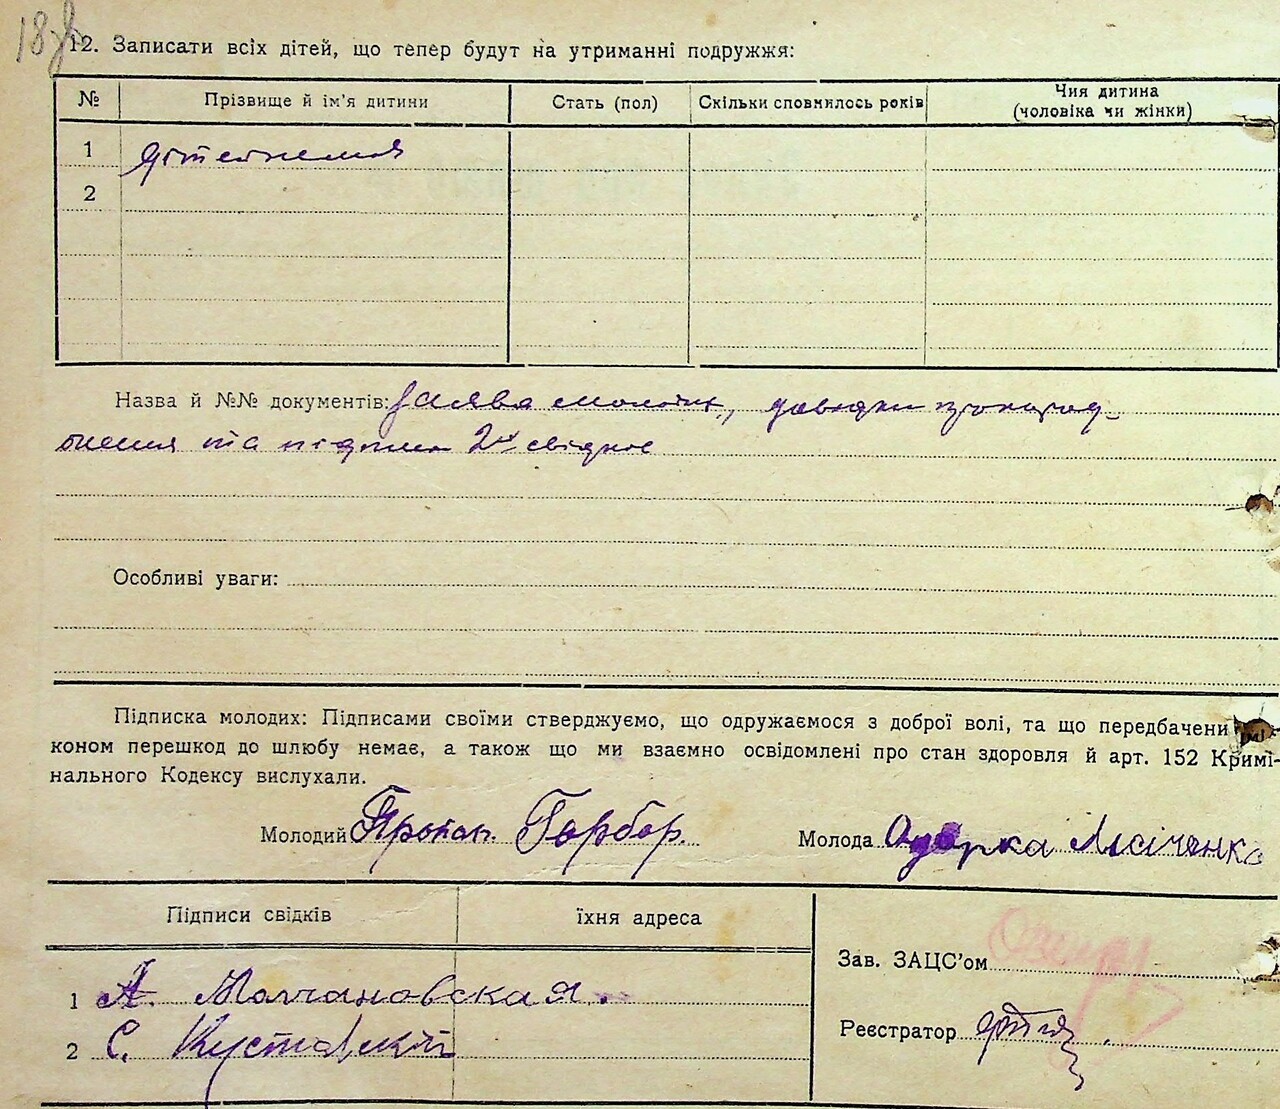 18зв
12. Записати всіх дітей, що тепер будут на утриманні подружжя:
№ Прізвище й ім’я дитини Стать (пол) Скільки сповнилось років Чия дитина
(чоловіка чи жінки)
1 дітей нема
2
Назва й №№ документів: заява молодих, довідки про народ-
ження та підписи 2х свідків
Особливі уваги:
Підписка молодих: Підписами своїми стверджуємо, що одружаємося з доброї волі, та що передбачени
коном перешкод до шлюбу немає, а також що ми взаємно освідомлені про стан здоровля й арт. 152 Кримі-
нального Кодексу вислухали.
Молодий Горбор. Молода Одарка Лисіченко
Підписи свідків їхня адреса
Зав. ЗАЦС’ом
1 А.
2 С.
Реєстратор